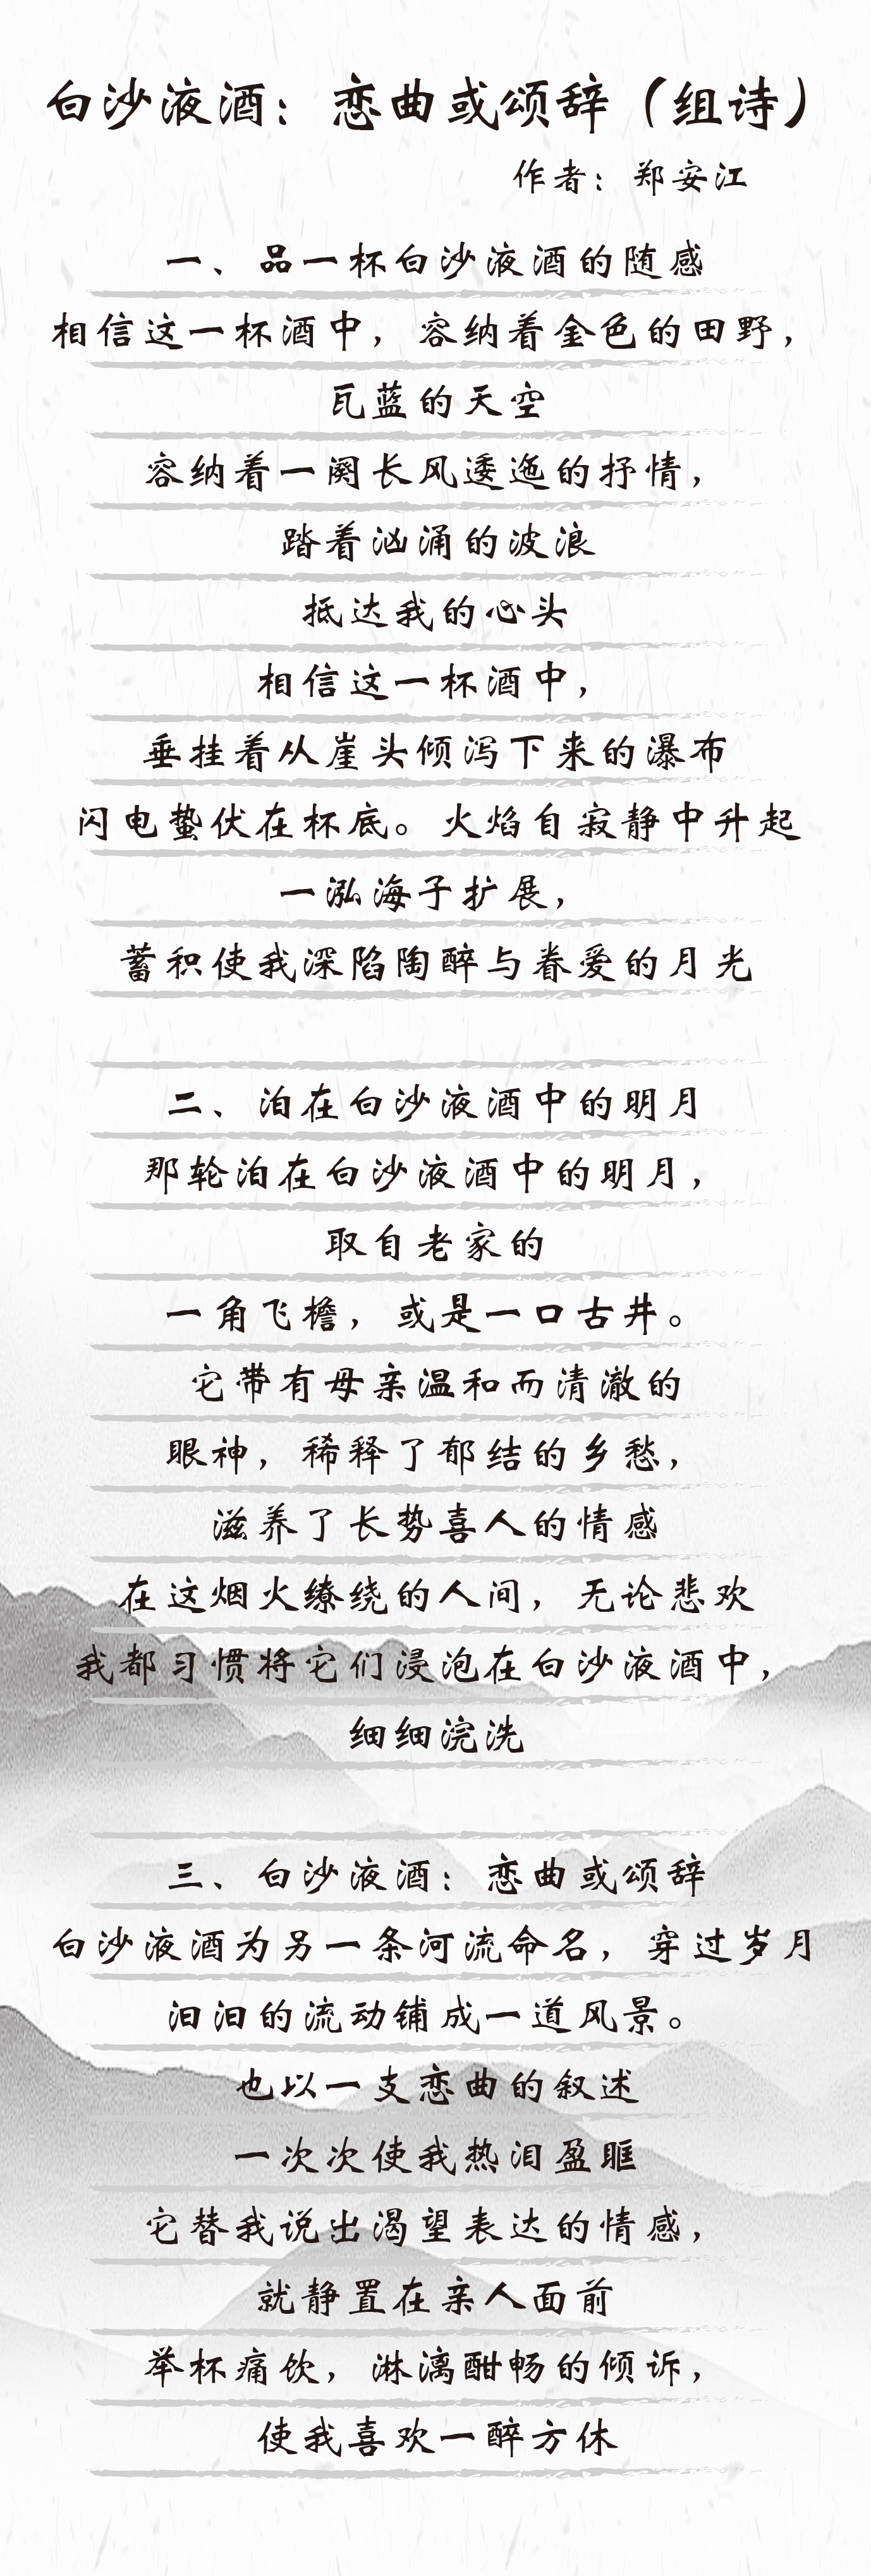 白沙液酒：恋曲或颂辞（组诗）
作者：郑安江
一、品一杯白沙液酒的随感
相信这一杯酒中，容纳着金色的田野，
瓦蓝的天空
容纳着一阕长风逶迤的抒情，
踏着汹涌的波浪
抵达我的心头
相信这一杯酒中，
垂挂着从崖头倾泻下来的瀑布
闪电蛰伏在杯底。火焰自寂静中升起
一泓海子扩展，
蓄积使我深陷陶醉与眷爱的月光
二、泊在白沙液酒中的明月
那轮泊在白沙液酒中的明月，
取自老家的
一角飞檐，或是一口古井。
它带有母亲温和而清澈的
眼神，稀释了郁结的乡愁，
滋养了长势喜人的情感
在这烟火缭绕的人间，无论悲欢
我都习惯将它们浸泡在白沙液酒中，
细细浣洗
三、白沙液酒：恋曲或颂辞
白沙液酒为另一条河流命名，穿过岁月
汩汩的流动铺成一道风景。
也以一支恋曲的叙述
一次次使我热泪盈眶
它替我说出渴望表达的情感，
就静置在亲人面前
举杯痛饮，淋漓酣畅的倾诉，
使我喜欢一醉方休